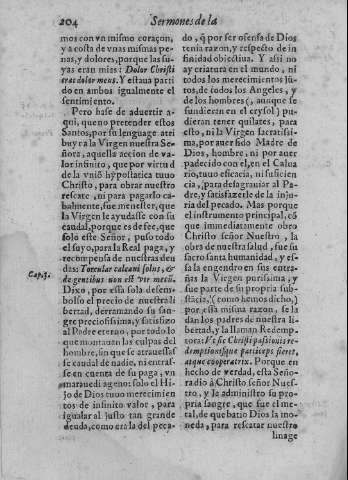 204
Sermones de la
mos con vn mismo coraçon,
y a costa de vnas mismas pe-
nas, y dolores, porque las su-
yas eran mias: Dolor Christi
erat dolor meus. Y estaua parti
do en ambos igualmente el
sentimiento.
Pero hase de aduertir a-
qui, que no pretenden estos
Santos, por su lenguage atri
buyr a la Virgen nuestra Se-
ñora, aquella accion de va-
lor infinito, que por virtud
de la vniõ hypostatica tuuo
Christo, para obrar nuestro
rescate, ni para pagarlo ca-
balmente, fue menester, que
la Virgen le ayudasse con su
caudal, porque es de fee, que
solo este Señor, puso todo
el suyo, para la Real paga, y
recompensa de nuestras deu
das: Torcular calcaui solus, &
Cap. 3.
de gentibus non est vir mecũ.
Dixo, por esta sola desem-
bolso el precio de nuestra li
bertad, derramando su san
gre preciosissima, y satisfizo
al Padre eterno, por todo lo
que montauan las culpas del
hombre, sin que se atrauesas
se caudal de nadie, ni entras-
se en cuenta de su paga, vn
marauedi ageno: solo el Hi-
jo de Dios tuuo merecimien
tos de infinito valor, para
igualar al justo tan grande
deuda, como era la del peca-
do, q̃ por ser ofensa de Dios
tenia razon, y respecto de in
finidad obiectiua. Y assi no
ay criatura en el mundo, ni
todos los merecimientos jũ-
tos, de todos los Angeles, y
de los hombres (, aunque se
fundieran en el crysol) pu-
dieran tener quilates, para
esto, ni la Virgen sacratissi-
ma, por auer sido Madre de
Dios, hombre, ni por auer
padecido con el, en el Calua
rio, tuuo eficacia, ni suficien
cia, (para desagrauiar al Pa-
dre, y satisfazerle de la inju-
ria del pecado. Mas porque
el instrumento principal, cõ
que immediatamente obro
Christo Señor Nuestro, la
obra de nuestra salud, fue su
sacro santa humanidad, y es-
sa la engendro en sus entra-
ñas la Virgen purissima, y
fue parte de su propria sub-
stãcia, (como hemos dicho,)
por esta misma razon, se la
dan los padres de nuestra li
bertad, y la llaman Redemp
tora: Vt sic Christi passionis re-
demptionisque particeps fieret,
atque cooperatrix. Porque en
hecho de verdad, esta Seño-
ra dio à Christo señor Nues-
tro, y le administro su pro-
pria sangre, que fue el me-
tal, de que batio Dios la mo-
neda, para rescatar nuestro
linage